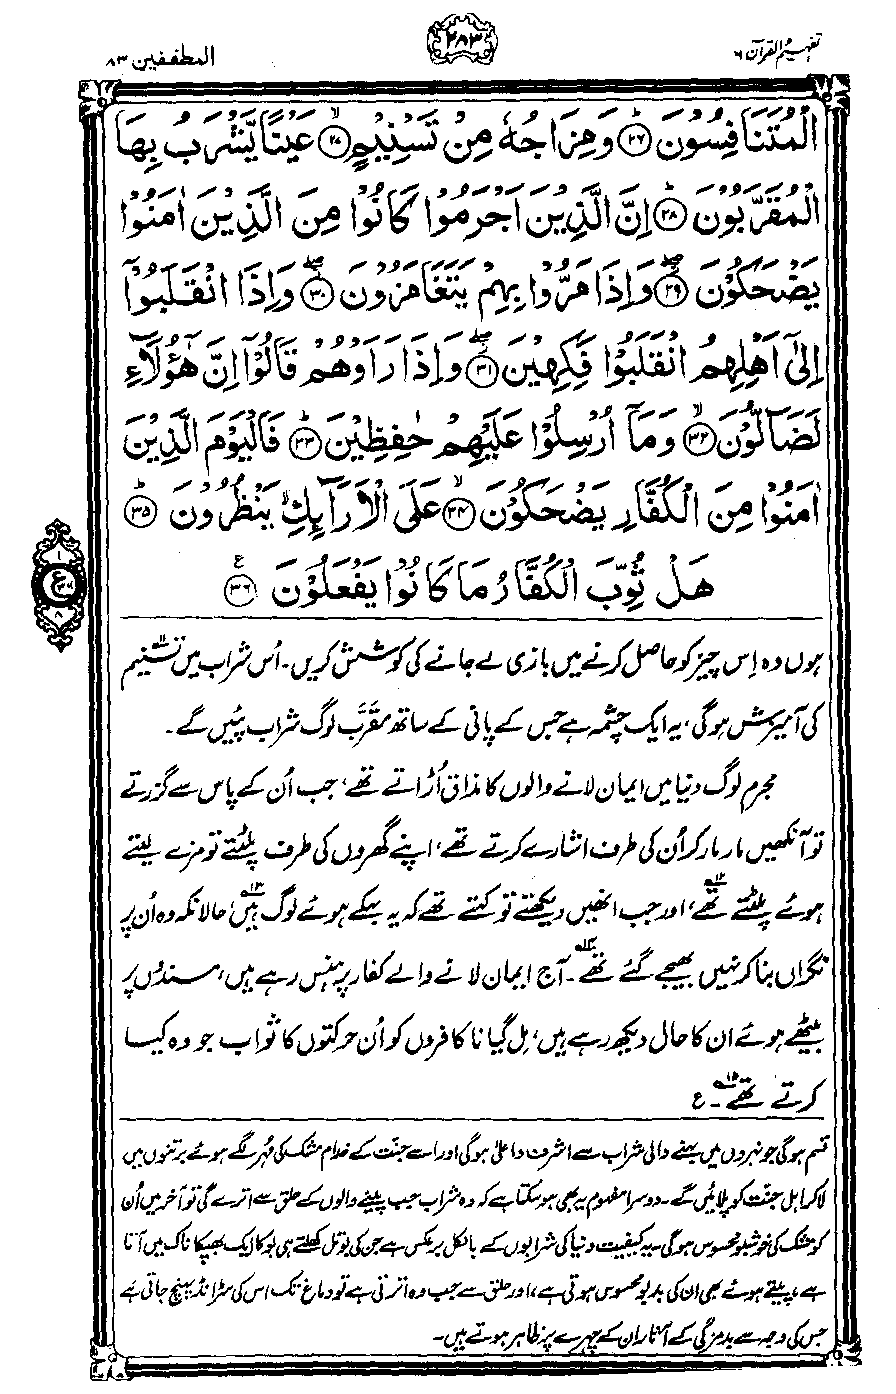 تفہیم القرآن ۶
۲۸۳
المطففین ۸۳
الْمُتَنَافِسُوْنَ ﴿۲۶﴾ وَمِزَاجُهٗ مِنْ تَسْنِيْمٍ ﴿۲۷﴾ عَيْنًا يَّشْرَبُ بِهَا
الْمُقَرَّبُوْنَ ﴿۲۸﴾ اِنَّ الَّذِيْنَ اَجْرَمُوْا كَانُوْا مِنَ الَّذِيْنَ اٰمَنُوْا
يَضْحَكُوْنَ ﴿۲۹﴾ وَاِذَا مَرُّوْا بِهِمْ يَتَغَامَزُوْنَ ﴿۳۰﴾ وَاِذَا انْقَلَبُوْٓا
اِلٰٓى اَهْلِهِمُ انْقَلَبُوْا فَكِهِيْنَ ﴿۳۱﴾ وَاِذَا رَاَوْهُمْ قَالُوْٓا اِنَّ هٰٓؤُلَآءِ
لَضَآلُّوْنَ ﴿۳۲﴾ وَمَآ اُرْسِلُوْا عَلَيْهِمْ حٰفِظِيْنَ ﴿۳۳﴾ فَالْيَوْمَ الَّذِيْنَ
اٰمَنُوْا مِنَ الْكُفَّارِ يَضْحَكُوْنَ ﴿۳۴﴾ عَلَى الْاَرَآئِكِ يَنْظُرُوْنَ ﴿۳۵﴾
هَلْ ثُوِّبَ الْكُفَّارُ مَا كَانُوْا يَفْعَلُوْنَ ﴿۳۶﴾ ع
۱
ع ۳۶
۸
ہوں وہ اِس چیز کو حاصل کرنے میں بازی لے جانے کی کوشش کریں۔ اُس شراب میں تسنیم۱۱
کی آمیزش ہوگی، یہ ایک چشمہ ہے جس کے پانی کے ساتھ مقرَّب لوگ شراب پئیں گے۔
مجرم لوگ دنیا میں ایمان لانے والوں کا مذاق اُڑاتے تھے، جب اُن کے پاس سے گزرتے
تو آنکھیں مار مار کر اُن کی طرف اشارے کرتے تھے، اپنے گھروں کی طرف پلٹتے تو مزے لیتے
ہوئے پلٹتے تھے۱۲، اور جب انھیں دیکھتے تو کہتے تھے کہ یہ بہکے ہوئے لوگ ہیں۱۳، حالانکہ وہ اُن پر
نگراں بنا کر نہیں بھیجے گئے تھے۱۴۔ آج ایمان لانے والے کفار پر ہنس رہے ہیں، مسندوں پر
بیٹھے ہوئے ان کا حال دیکھ رہے ہیں، مل گیا نا کافروں کو اُن حرکتوں کا ثواب جو وہ کیا
کرتے تھے۱۵۔ ع
قسم ہوگی جو نہروں میں بہنے والی شراب سے اشرف و اعلیٰ ہوگی اور اسے جنّت کے خدام مشک کی مُہر لگے ہوئے برتنوں میں
لا کر اہل جنّت کو پلائیں گے۔ دوسرا مفہوم یہ بھی ہو سکتا ہے کہ وہ شراب جب پینے والوں کے حلق سے اترے گی تو آخر میں اُن
کو مشک کی خوشبو محسوس ہوگی۔ یہ کیفیت دنیا کی شرابوں کے بالکل برعکس ہے جن کی بوتل کھلتے ہی بُو کا ایک بھپکا ناک میں آتا
ہے، پیتے ہوئے بھی ان کی بدبو محسوس ہوتی ہے، اور حلق سے جب وہ اترتی ہے تو دماغ تک اس کی سڑاند پہنچ جاتی ہے
جس کی وجہ سے بدمزگی کے آثار ان کے چہرے پر ظاہر ہوتے ہیں۔